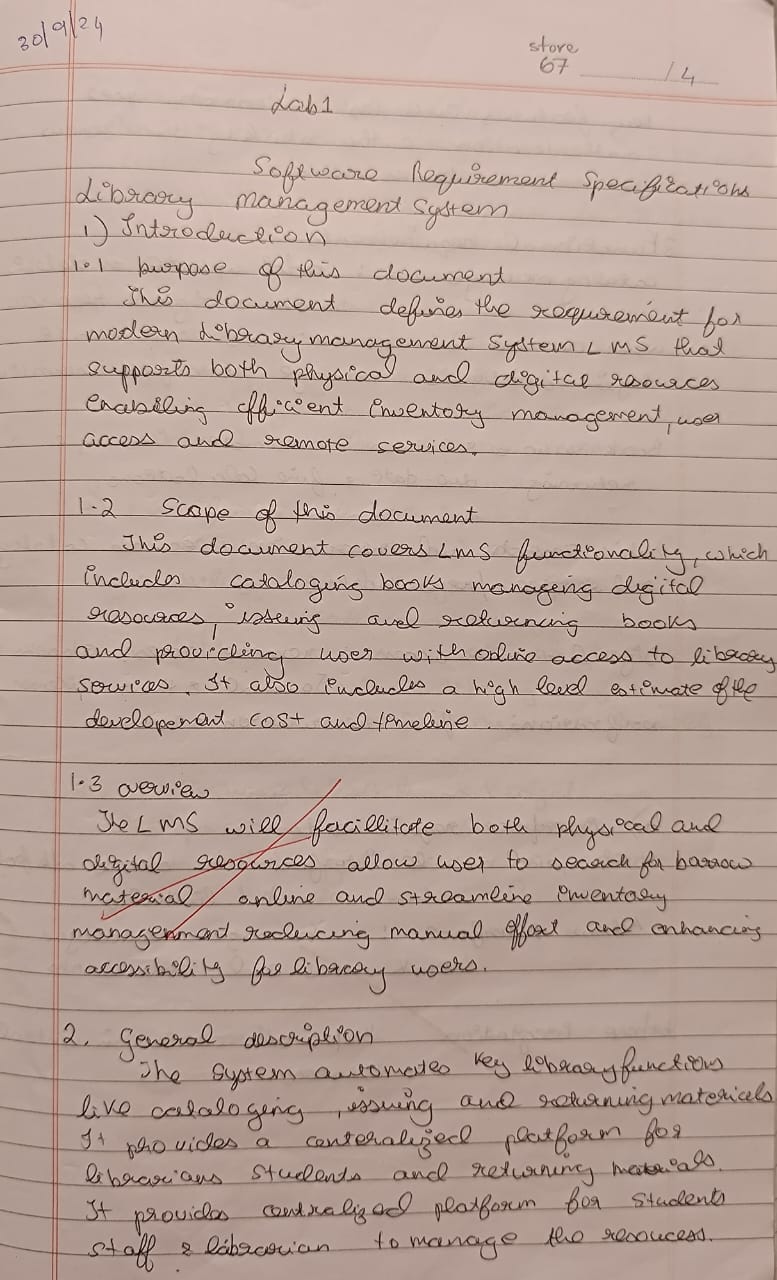 30/9/24
store
67 /4
Lab1
Software Requirement Specifications
Library management System
1) Introduction
1.1 purpose of this document
This document defines the requirement for
modern Library management System LMS that
supports both physical and digital resources
enabling efficient inventory management, user
access and remote services.
1.2 Scope of this document
This document covers LMS functionality, which
includes cataloging books managing digital
resources, issuing and returning books
and providing user with online access to library
services. It also includes a high level estimate of the
developenent cost and timeline.
1.3 overview
The LMS will facillitate both physical and
digital resources allow user to search for barrow
material online and streamline inventory
management reducing manual effort and enhancing
accessibility for library users.
2. General description
The System automates key library functions
like cataloging, issuing and returning materials
It provides a centeralized platform for
librarians students and returning materials.
It provides centralized platform for students
staff & librarian to manage the resources.